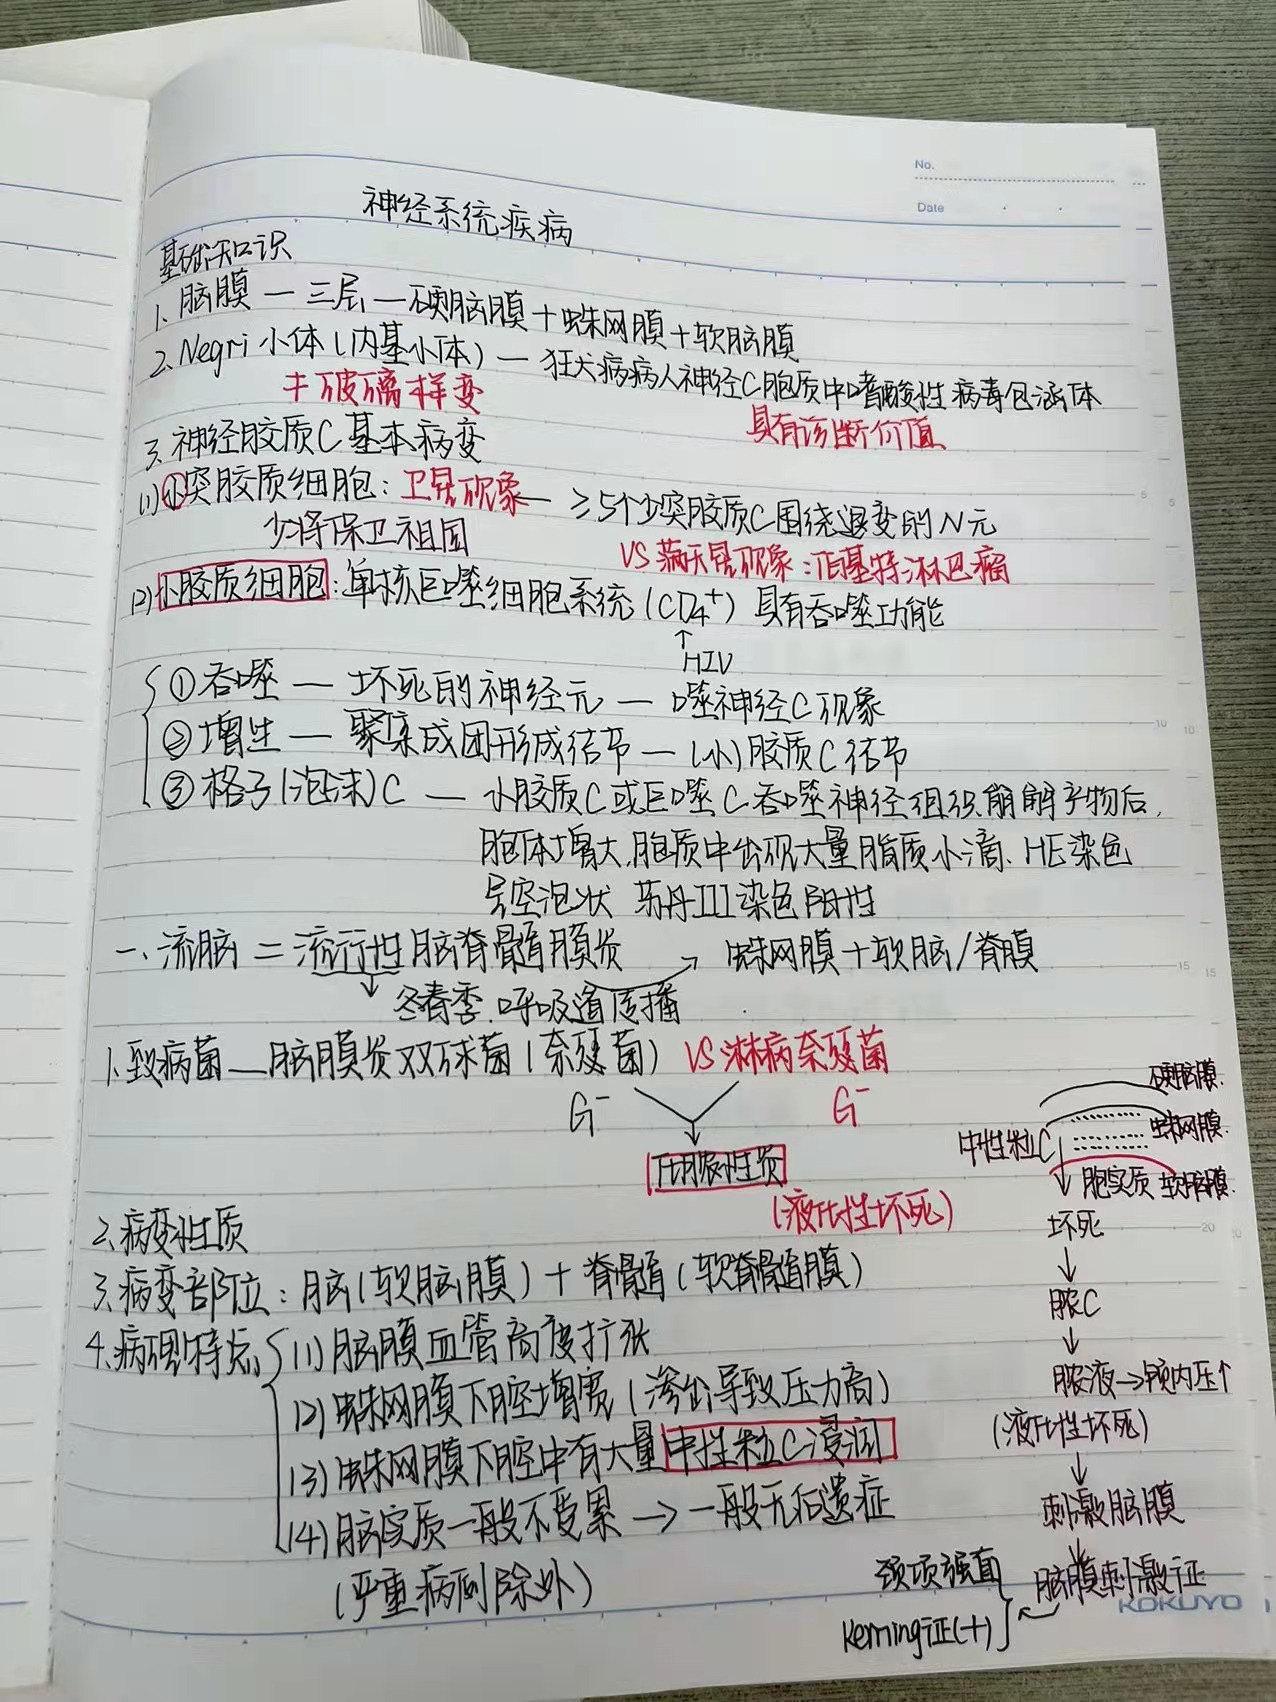 No.
Date
神经系统疾病
基础知识
1. 脑膜 — 三层 — 硬脑膜 + 蛛网膜 + 软脑膜
2. Negri 小体 (内基小体) — 狂犬病病人神经C胞质中嗜酸性病毒包涵体
玻璃样变
具有诊断价值
3. 神经胶质C基本病变
(1) 少突胶质细胞: 卫星现象 ← ≥5个少突胶质C围绕退变的N元
少将保卫祖国
VS 满天星现象: 伯基特淋巴瘤
(2) 小胶质细胞: 单核巨噬细胞系统 (CD4⁺) 具有吞噬功能
↑
HIV
① 吞噬 — 坏死的神经元 — 噬神经C现象
② 增生 — 聚集成团形成结节 — (小)胶质C结节
③ 格子(泡沫)C — 小胶质C或巨噬C吞噬神经组织崩解产物后,
胞体增大,胞质中出现大量脂质小滴、HE染色
呈空泡状 苏丹III染色阳性
一、流脑 = 流行性脑脊髓膜炎 → 蛛网膜+软脑/脊膜
↓ 冬春季.呼吸道传播
1. 致病菌 — 脑膜炎双球菌 (奈瑟菌) VS 淋病奈瑟菌
G⁻ G⁻
化脓性炎
(液化性坏死)
2. 病变性质
3. 病变部位: 脑(软脑膜) + 脊髓(软脊髓膜)
4. 病理特点 (1) 脑膜血管高度扩张
(2) 蛛网膜下腔增宽 (渗出导致压力高)
(3) 蛛网膜下腔中有大量中性粒C浸润
(4) 脑实质一般不受累 → 一般无后遗症
(严重病例除外)
硬脑膜.
蛛网膜.
中性粒C
↓ 脑实质 软脑膜.
坏死
↓
脓C
↓
脓液 → 颅内压↑
(液化性坏死)
↓
刺激脑膜
↓
脑膜刺激征
颈项强直
Kerning征(+)
KOKUYO
5
10
15
20